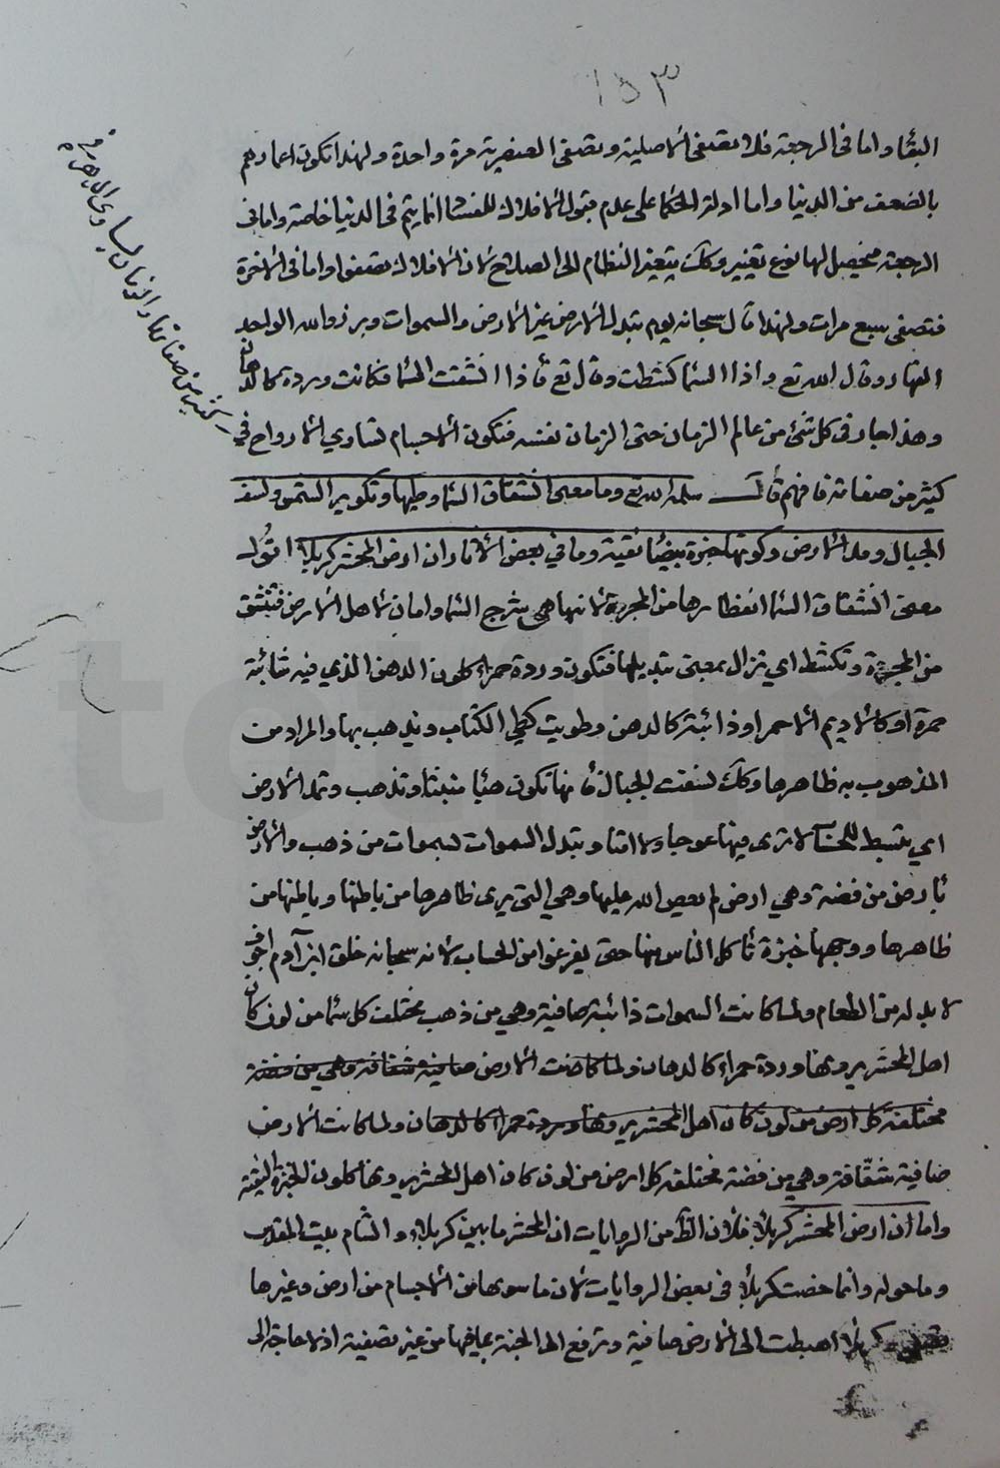 ١٥٣
البقاء واما فى الرجعة فلا تصفى الاصلية وتصفى العنصرية مرة واحدة ولهذا تكون اعمارهم
بالضعف من الدنيا واما ادلة الحكماء على عدم قبول الافلاك للفساد انما يتم فى الدنيا خاصة واما فى
الرجعة فيحصل لها نوع تغيير وكذلك يتغير النظام الى الصلاح لان الافلاك تصفو واما فى الاخرة
فتصفى سبع مرات ولهذا قال سبحانه يوم تبدل الارض غير الارض والسموات وبرزوا لله الواحد
القهار وقال الله تع واذا السماء كشطت وقال تع فاذا انشقت السماء فكانت وردة كالدهان
وهذا جار فى كل شئ من عالم الزمان حتى الزمان نفسه فتكون الاجسام تساوي الارواح في
كثير من صفاته فافهم قال سلمه الله تع وما معنى انشقاق السماء وطيها وتكوير الشمس ونسف
الجبال ومد الارض وكونها خبزة بيضاء نقية وما في بعض الاثار ان ارض المحشر كربلا اقول
معنى انشقاق السماء انفطارها من المجرة لانها هى شرج السماء وامان لاهل الارض فتنشق
من المجرة وتكشط اي تزال بمعنى تبديلها فتكون وردة حمراء كلون الدهن الذي فيه شائبة
حمرة او كالاديم الاحمر او ذائبة كالدهن وطويت كطي الكتاب ويذهب بها والمراد من
المذهوب به ظاهرها وكذلك نسفت الجبال فانها تكون هباء منبثا وتذهب وتمد الارض
اي تنبسط للحساب لا ترى فيها عوجا ولا امتا وتبدل السموات بسموات من ذهب والارض
بارض من فضة وهي ارض لم يعص الله عليها وهي التي يرى ظاهرها من باطنها وباطنها من
ظاهرها ووجهها خبزة تأكل الناس منها حتى يفرغوا من الحساب لانه سبحانه خلق ابن آدم اجوف
لا بد له من الطعام ولما كانت السموات ذائبة صافية وهي من ذهب مختلف كل سماء من لون كان
اهل المحشر يرونها وردة حمراء كالدهان ولما كانت الارض صافية شفافة وهي من فضة
مختلفة كل ارض من لون كان اهل المحشر يرونها وردة حمراء كالدهان ولما كانت الارض
صافية شفّافة وهي من فضة مختلفة كل ارض من لون كان اهل المحشر يرونها كلون الخبزة النقية
واما ان ارض المحشر كربلا فلان الظ من الروايات ان المحشر ما بين كربلا والشام بيت المقدس
وما حوله وانما خصت كربلا فى بعض الروايات لان ما سواها من الاجسام من ارض وغيرها
كربلا اهبطت الى الارض صافية وترفع الى الجنة بما فيها من غير تصفية اذ لا حاجة الى
كثير من صفاتها والزمان يساوى الدهر فى